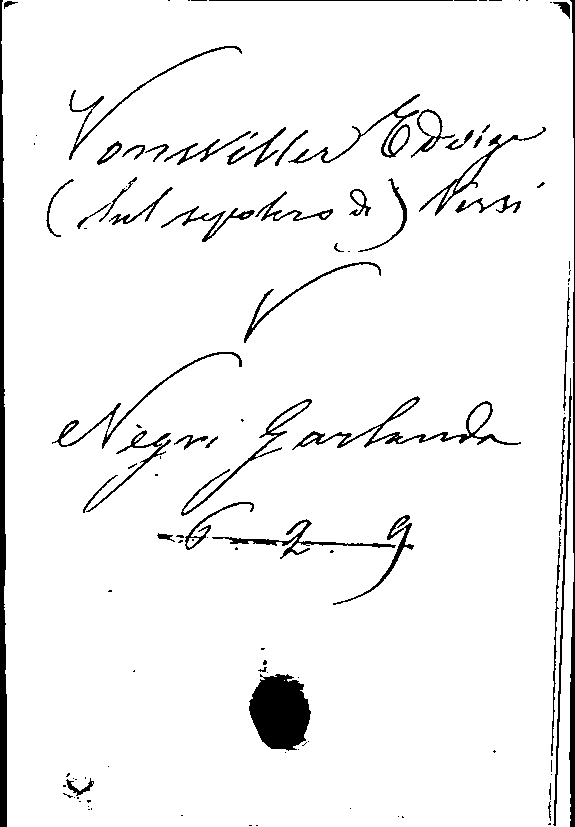 Vonwiller Edvige
(Sul sepolcro di) Versi
V
Negri Garlanda
6.2.9